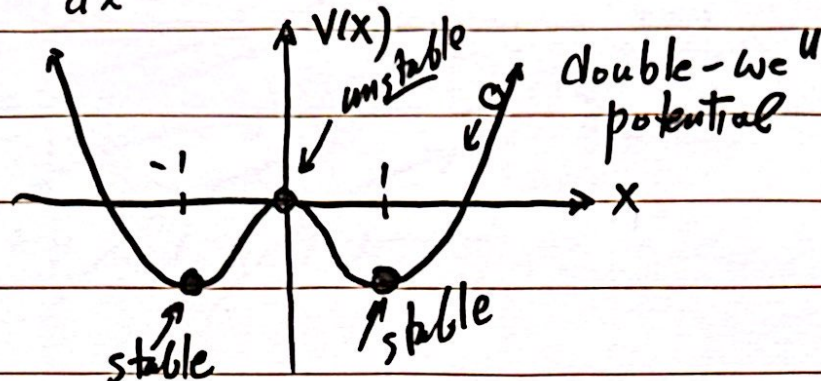 dx
V(x)
unstable
double-well
potential
-1
1
x
stable
stable